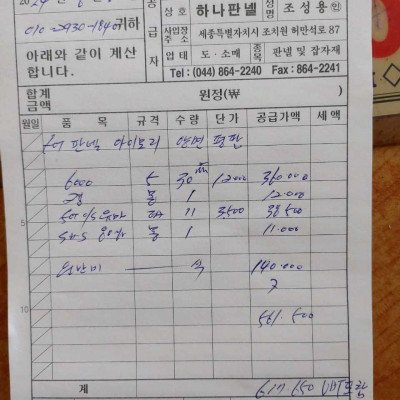 2024 년
010-2930-1840 귀하
아래와 같이 계산
합니다.
공급자
상호 하나판넬 성명 조성용 ㊞
사업장주소 세종특별자치시 조치원 허만석로 87
업태 도·소매 종목 판넬 및 잡자재
Tel : (044) 864-2240 Fax : 864-2241
합계금액 원정(₩ )
월일 품목 규격 수량 단가 공급가액 세액
50T 판넬 아이보리 양면 평판
6000 5 30 12000 360.000
1 12.000
5
EA 11 3500 38.500
1 11.000
운반비 140.000
10
561.500
계 617.650 VAT포함